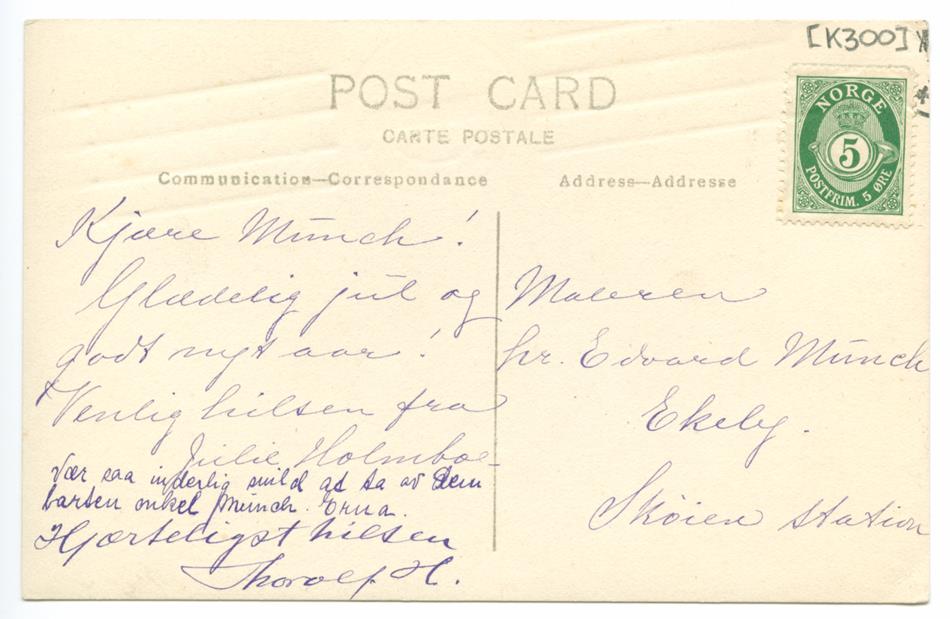 [K300]
NORGE
5
POSTFRIM. 5 ØRE
POST CARD
CARTE POSTALE
Communication—Correspondance
Address—Addresse
Kjære Munch!
Glædelig jul og
godt nytaar!
Venlig hilsen fra
Julie Holmboe
Vær saa inderlig snild at ta av dem
barten onkel Munch. Erna.
Hjærteligst hilsen
Thorolf H.
Maleren
hr. Edvard Munch
Ekely.
Skøien station